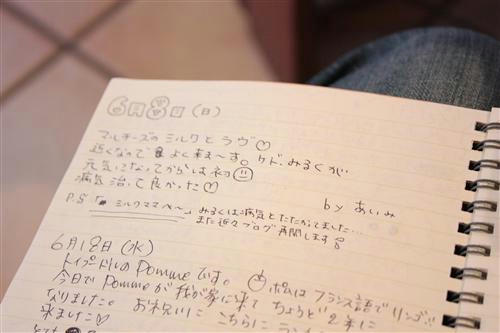 6月8日(日)
マルチーズのミルクとラヴ♡
近くなのでよく来ま〜す。ケド、みるくが
元気になってからは初☺
病気治って良かった♡
by あいみ
P.S 「ミルクママへ〜」みるくは病気とたたかってました…
また近々ブログ再開します
6月18日(水)
トイプードルのPommeです。 Pommeはフランス語でリンゴ
今日でPommeが我が家に来てちょうど2年に
なりました。お祝いにこちらに
来ました♡